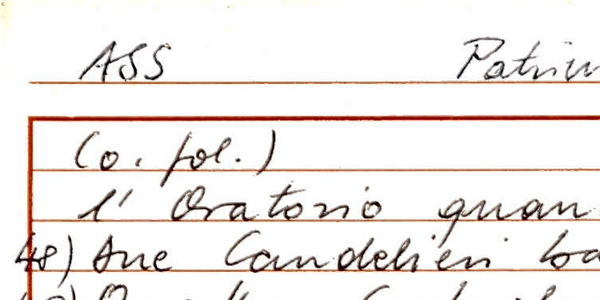 ASS Patrim
(o. fol.)
l' Oratorio quan
48) Due Candelieri